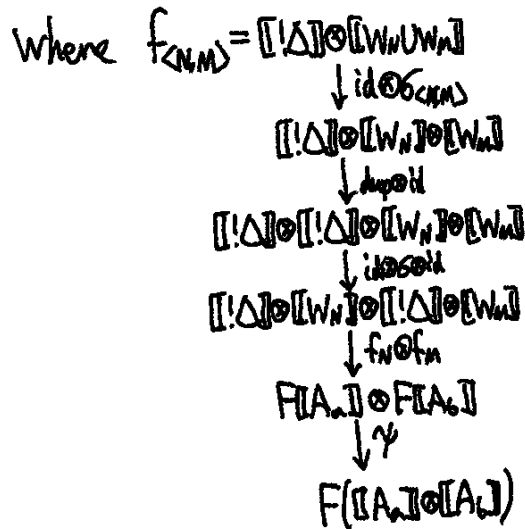 where f_{<N,M>} = ⟦!Δ⟧⊗⟦W_N∪W_M⟧
↓ id⊗σ_{<N,M>}
⟦!Δ⟧⊗⟦W_N⟧⊗⟦W_M⟧
↓ dup⊗id
⟦!Δ⟧⊗⟦!Δ⟧⊗⟦W_N⟧⊗⟦W_M⟧
↓ id⊗σ⊗id
⟦!Δ⟧⊗⟦W_N⟧⊗⟦!Δ⟧⊗⟦W_M⟧
↓ f_N⊗f_M
F⟦A_a⟧⊗F⟦A_b⟧
↓ ψ
F(⟦A_a⟧⊗⟦A_b⟧)